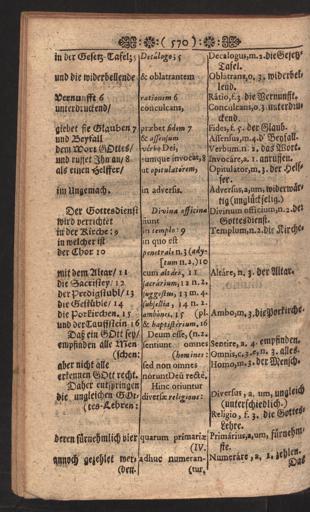 ( 570 )
in der Gesetz-Tafel 5 Decálogo 5 Decalogus, m. 2. die Gesetz-
Tafel.
und die widerbellende & oblatrantem Oblatrans, o. 3. widerbel-
lend.
Vernunfft 6 rationem 6 Rátio, f. 3. die Vernunfft.
unterdruckend/ conculcans, Conculcans, o. 3. unterdru-
ckend.
giebet sie Glauben 7 præbet fidem 7 Fides, f. 5. der Glaub.
und Beyfall & assensum Assensus, m. 4. d' Beyfall.
dem Wort GOttes/ verbo Dei, Verbum, n. 2. das Wort.
und ruffet Ihn an/ 8 eumque invocat, 8 Invocáre, a. 1. anruffen.
als einen Helffer/ ut opitulatorem, Opitulator, m. 3. der Helf-
fer.
im Ungemach. in adversis. Adversus, a, um, widerwär-
tig (unglückselig.)
Der Gottesdienst Divina officina Divinum officium, n. 2. der
wird verrichtet fiunt Gottesdienst.
in der Kirche: 9 in templo: 9 Templum, n. 2. die Kirche.
in welcher ist in quo est
der Chor 10 penetrale n. 3 (ady-
tum n. 2.) 10
mit dem Altar/ 11 cum altári, 11 Altáre, n. 3. der Altar.
die Sacristey/ 12 sacrárium, 12 n. 2.
der Predigstuhl/ 13 suggestus, 13 m. 4.
die Gestühle/ 14 subséllia, 14 n. 2.
die Porkirchen. 15 ambónes, 15 (pl. Ambo, m. 3. die Porkirche.
und der Tauffstein 16 & baptistérium, 16
Daß ein GOtt sey/ Deum esse, (n. 2.
empfinden alle Men sentiunt omnes Sentíre, a. 4. empfinden.
(schen: (homines: Omnis, c. 3. e, n. 3. alles.
aber nicht alle sed non omnes Homo, m. 3. der Mensch.
erkennen GOtt recht. nórunt Deū rectè.
Daher entspringen Hinc oriuntur
die ungleichen GOt- diversæ religiones: Diversus, a, um, ungleich
(tes-Lehren: (unterschiedlich.)
Religio, f. 3. die Gottes-
Lehre.
deren fürnehmlich vier quarum primariæ Primárius, a, um, fürnehm-
(IV. ste.
annoch gezehlet wer- adhuc numeran- Numeráre, a. 1. zehlen.
(den. (tur, Das